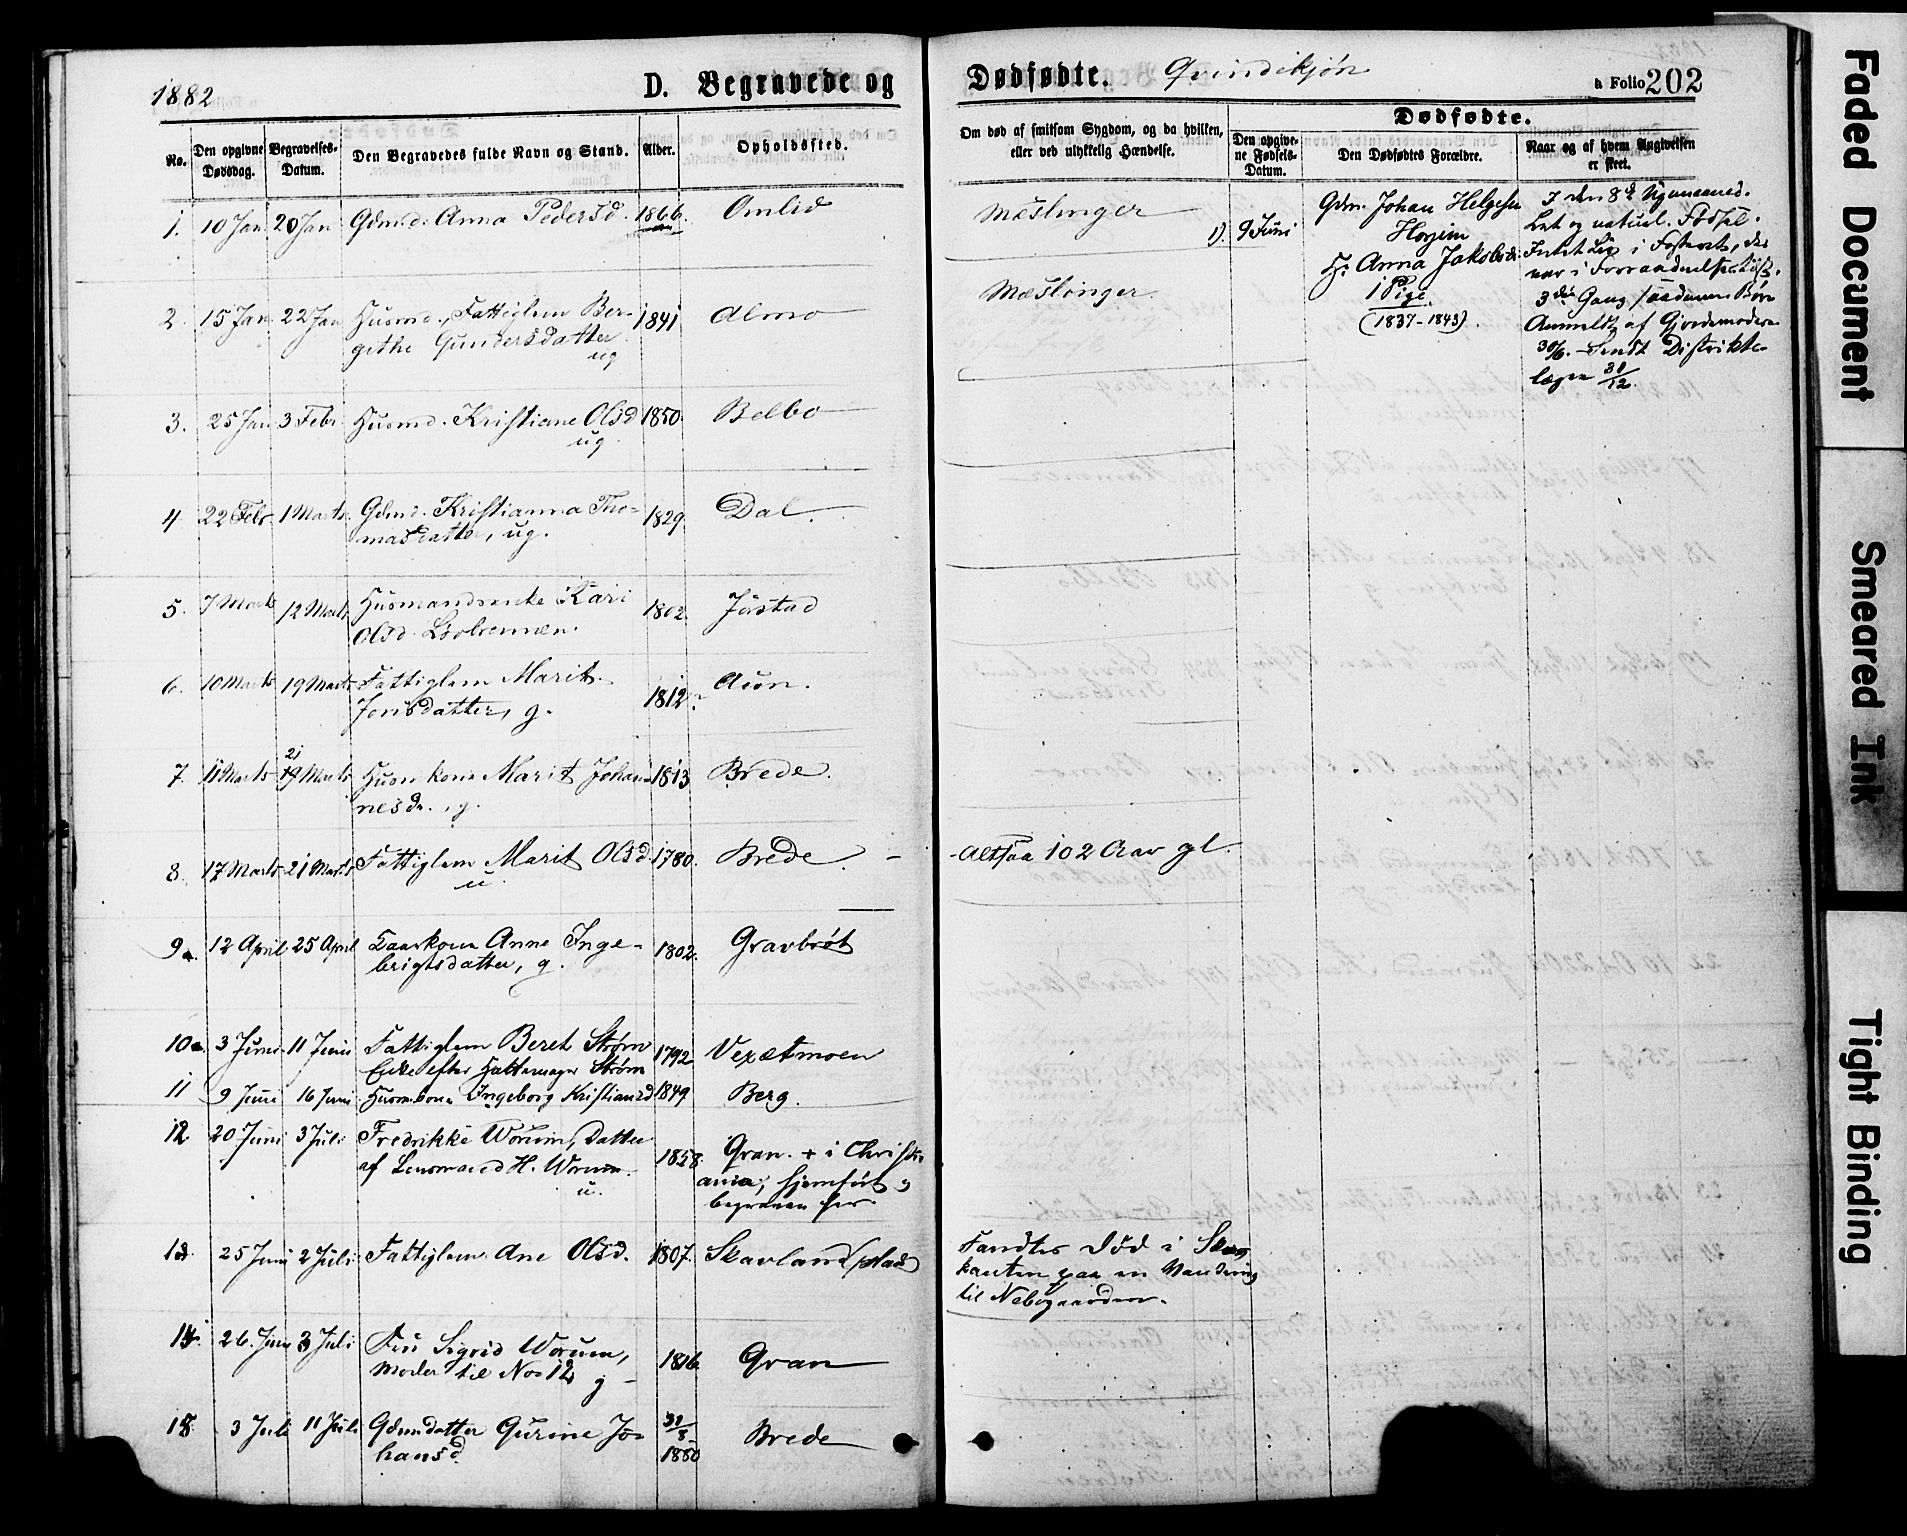 1882
D. Begravede og
No.
Den opgivne Dødsdag.
Begravelses-Datum.
Den Begravedes fulde Navn og Stand.
Alder.
Opholdssted.
1. 10 Jan 20 Jan Gdmd. Anna Pedersd. 1866. Omlid
2. 15 Jan 22 Jan Husmd., Fattiglem Ber- 1841 Almo
githe Gundersdatter
ug
3. 25 Jan 3 Febr Husmd. Kristiane Olsd 1850. Belbo
ug.
4 22 Febr. 1 Marts Gdmd. Kristianna Tho- 1829. Dal.
masdatter, ug.
5. 7 Marts 12 Marts Husmandsenke Kari 1802. Jøstad
Olsd.
6. 10 Marts 19 Marts Fattiglem Marit 1812? Aun.
Jonsdatter, g.
21
7. 11 Marts 19 Marts Husmkone Marit Johan- 1813 Brede.
nesdr., g.
8. 17 Marts 21 Marts Fattiglem Marit Olsd. 1780. Brede.
u.
9. 12 April 25 April Kaarkone Anne Inge- 1802. Gravbrøt
brigtsdatter, g.
10 3 Juni 11 Juni Fattiglem Beret Strøm 1792
Enke efter Hattemager Strøm
11 9 Juni 16 Juni Husmkone Ingeborg Kristiansd 1849 Berg.
12 20 Juni 3 Juli Fredrikke Worum, Datter 1858. Gran. + i Christi-
af Lensmand H. Worum. ania, hjemført og
u. begraven her
13. 25 Juni 2 Juli Fattiglem Ane Olsd. 1807. Skavland
14. 26. Juni 3 Juli Fru Sigrid Worum, 1816. Gran
Moder til No 12 g
15 3 Juli 11 Juli Gdmdatter Gurine Jo- Brede
hansd. 1880
Dødfødte. Qvindekjøn
a Folio 202
Om død af smitsom Sygdom, og da hvilken,
eller ved ulykkelig Hændelse.
Dødfødte.
Den opgivne Fødsels-Datum.
Den Dødfødtes Forældre.
Naar og af hvem Angivelsen
er skeet.
Mæslinger
Mæslinger.
Altsaa 102 Aar gl.
Fandtes død i Skov
kanten paa en Vandring
til Nabogaarden.
1). 9 Juni
Gdm. Johan Helgesen
H: Anna Jakobsdr:
1 Pige.
(1837-1843).
I den 8de Svangermaaned.
Let og naturl. Fødsel.
3die Gang saadanne Børn
Anmeldt af Gjordemoderen
30/6. Sendt Distrikts-
lægen 31/12.
Faded Document
Smeared Ink
Tight Binding